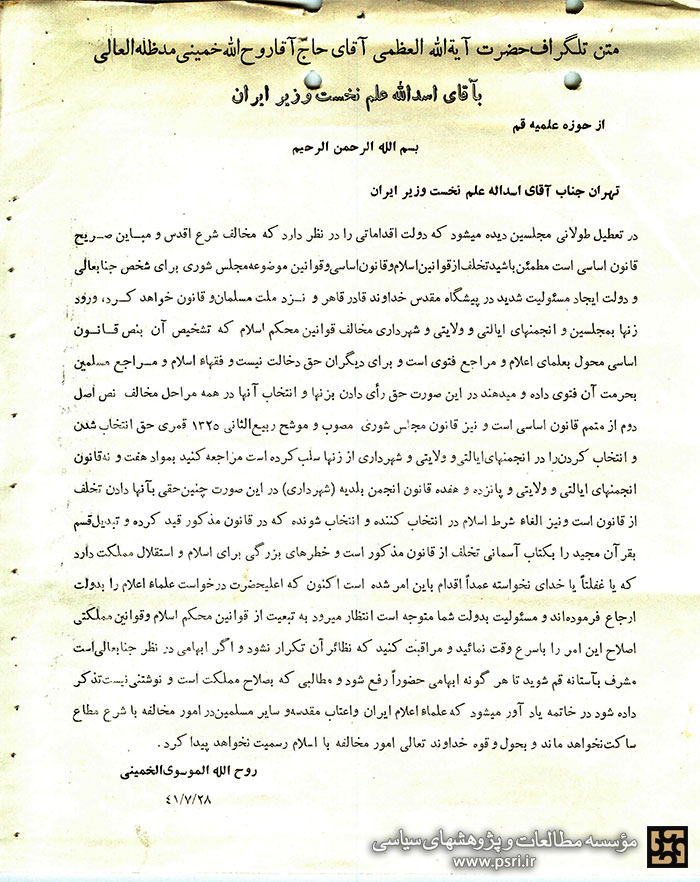 متن تلگراف حضرت آیة الله العظمی آقای حاج آقا روح الله خمینی مد ظله العالی
بآقای اسدالله علم نخست وزیر ایران
از حوزه علمیه قم
بسم الله الرحمن الرحیم
تهران جناب آقای اسداله علم نخست وزیر ایران
در تعطیل طولانی مجلسین دیده میشود که دولت اقداماتی را در نظر دارد که مخالف شرع اقدس و مباین صریح
قانون اساسی است مطمئن باشید تخلف از قوانین اسلام و قانون اساسی و قوانین موضوعه مجلس شوری برای شخص جنابعالی
و دولت ایجاد مسئولیت شدید در پیشگاه مقدس خداوند قادر قاهر و نزد ملت مسلمان و قانون خواهد کرد، ورود
زنها بمجلسین و انجمنهای ایالتی و ولایتی و شهرداری مخالف قوانین محکم اسلام که تشخیص آن بنص قانون
اساسی محول بعلمای اعلام و مراجع فتوی است و برای دیگران حق دخالت نیست و فقهاء اسلام و مراجع مسلمین
بحرمت آن فتوی داده و میدهند در این صورت حق رأی دادن بزنها و انتخاب آنها در همه مراحل مخالف نص اصل
دوم از متمم قانون اساسی است و نیز قانون مجلس شوری مصوب و موشح ربیع‌الثانی ۱۳۲۵ قمری حق انتخاب شدن
و انتخاب کردن را در انجمنهای ایالتی و ولایتی و شهرداری از زنها سلب کرده است مراجعه کنید بمواد هفت و نه قانون
انجمنهای ایالتی و ولایتی و پانزده و هفده قانون انجمن بلدیه (شهرداری) در این صورت چنین حقی بآنها دادن تخلف
از قانون است و نیز الغاء شرط اسلام در انتخاب کننده و انتخاب شونده که در قانون مذکور قید کرده و تبدیل قسم
بقرآن مجید را بکتاب آسمانی تخلف از قانون مذکور است و خطرهای بزرگی برای اسلام و استقلال مملکت دارد
که یا غفلتاً یا خدای نخواسته عمداً اقدام باین امر شده است اکنون که اعلیحضرت درخواست علماء اعلام را بدولت
ارجاع فرموده‌اند و مسئولیت بدولت شما متوجه است انتظار میرود به تبعیت از قوانین محکم اسلام و قوانین مملکتی
اصلاح این امر را باسرع وقت نمائید و مراقبت کنید که نظائر آن تکرار نشود و اگر ابهامی در نظر جنابعالی است
مشرف بآستانه قم شوید تا هر گونه ابهامی حضوراً رفع شود و مطالبی که بصلاح مملکت است و نوشتنی نیست تذکر
داده شود در خاتمه یاد آور میشود که علماء اعلام ایران و اعتاب مقدسه و سایر مسلمین در امور مخالفه با شرع مطاع
ساکت نخواهد ماند و بحول و قوه خداوند تعالی امور مخالفه با اسلام رسمیت نخواهد پیدا کرد.
روح الله الموسوی الخمینی
۴۱/۷/۲۸
مؤسسه مطالعات و پژوهشهای سیاسی
www.psri.ir